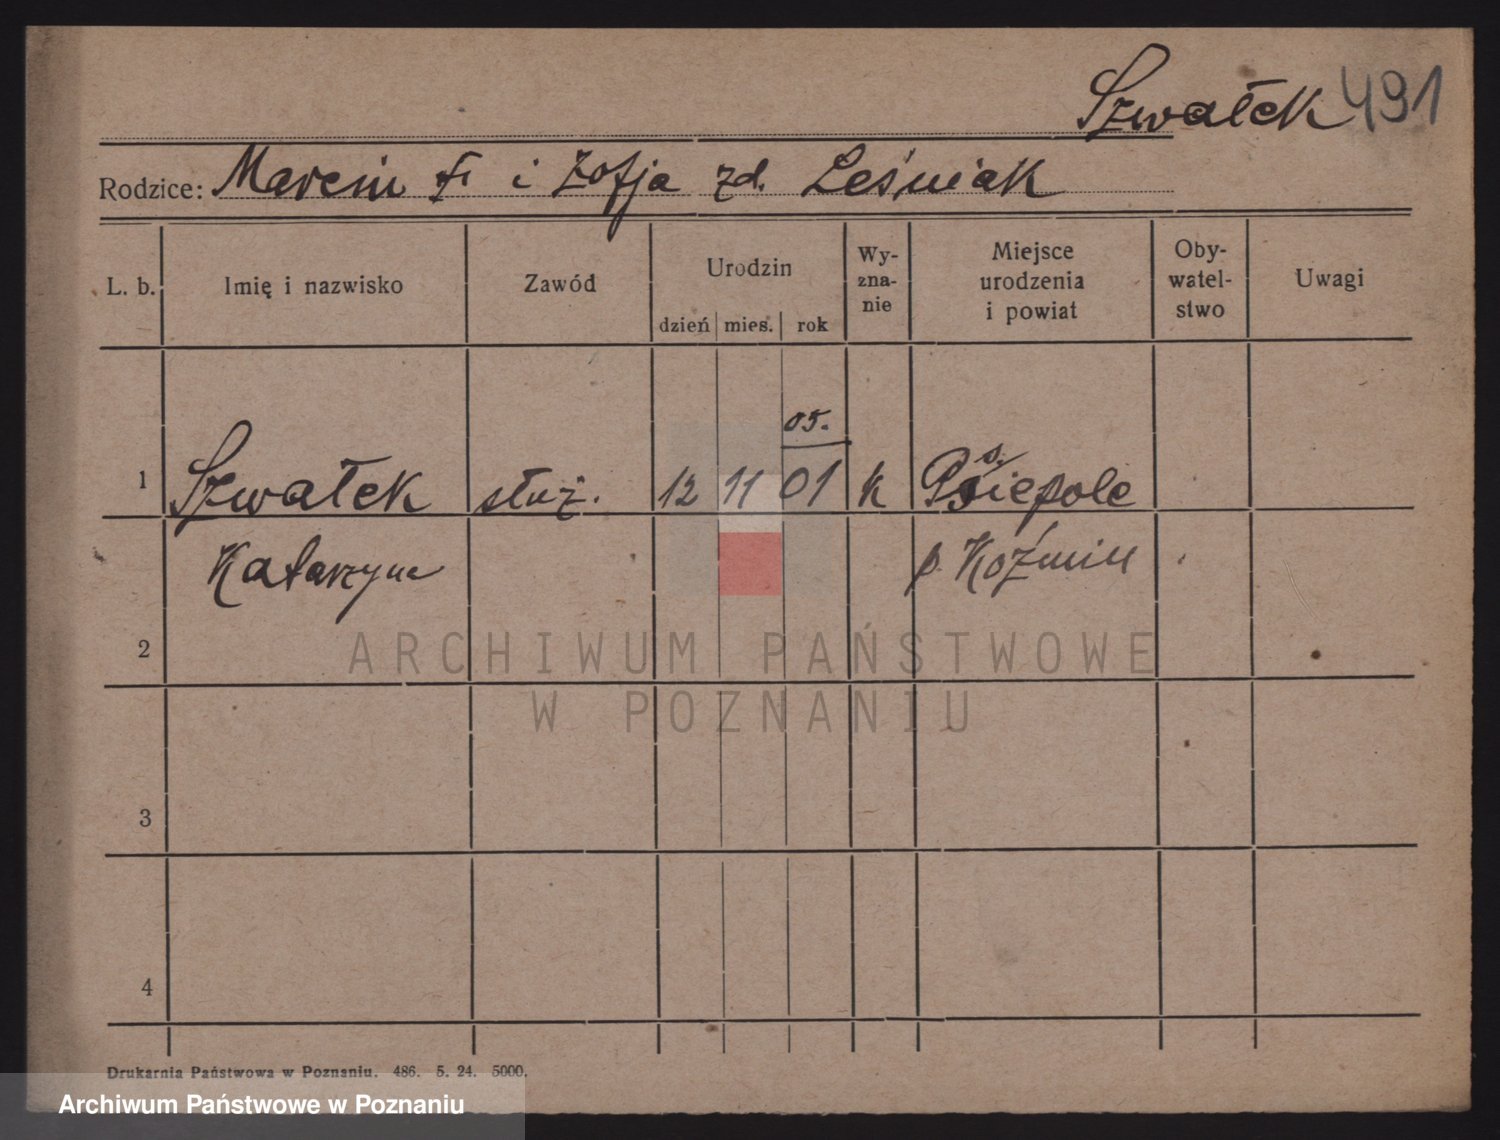 Szwałek 491
Rodzice: Marcin i Zofja zd. Leśniak
L. b. Imię i nazwisko Zawód Urodzin dzień mies. rok Wy-zna-nie Miejsce urodzenia i powiat Oby-watel-stwo Uwagi
05.
1 Szwałek służ. 12 11 01 k Psiepole
Katarzyna p. Koźmin
2
ARCHIWUM PAŃSTWOWE
W POZNANIU
3
4
Drukarnia Państwowa w Poznaniu. 486. 5. 24. 5000.
Archiwum Państwowe w Poznaniu